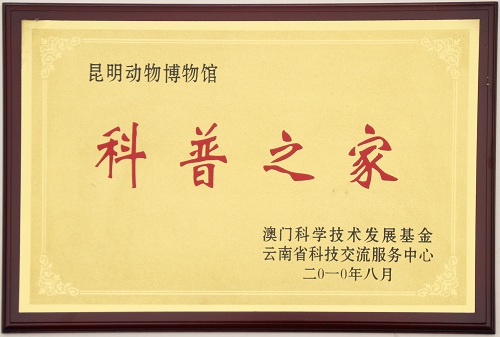 昆明动物博物馆
科普之家
澳门科学技术发展基金
云南省科技交流服务中心
二〇一〇年八月